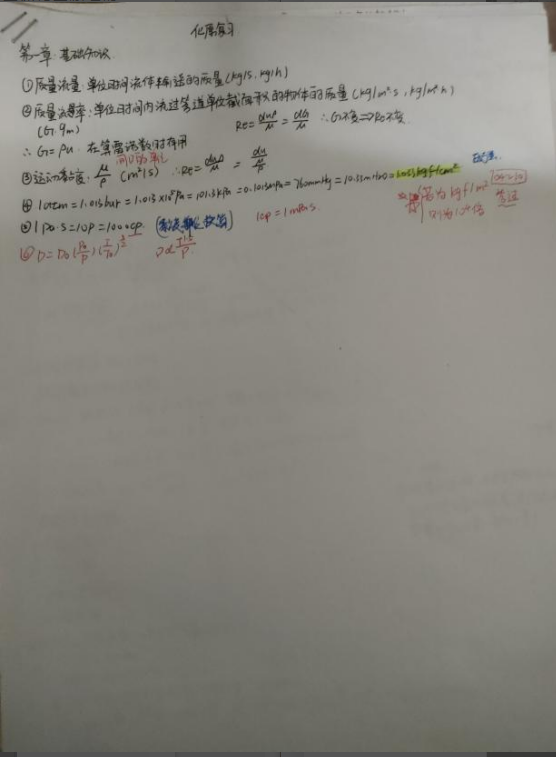 化原复习
第一章 基础知识
①质量流量 单位时间流体输送的质量(kg/s, kg/h)
②质量流率:单位时间内流过管道单位截面积的物体的质量(kg/m²s, kg/m²h)
(G. qm) Re=duρ/μ = dG/μ ∴G不变=>Re不变
∴ G=ρu. 在算雷诺数时有用
③运动黏度: μ/ρ (m²/s) ∴Re=duρ/μ = du/(μ/ρ)
④ 1atm=1.013bar=1.013×10⁵Pa=101.3kPa=0.1013MPa=760mmHg=10.33mH₂O=1.033kgf/cm²
若为kgf/m²
⑤1Pa·s=10P=1000cP. 1cP=1mPa·s
⑥D=D₀(P₀/P)(T/T₀)^(3/2)